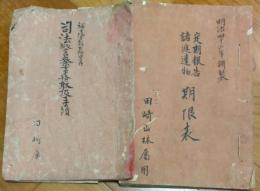 明治四十年調製
定期報告
諸進達物
期限表
田崎山林属用
司法警察事務取扱手続
田崎属